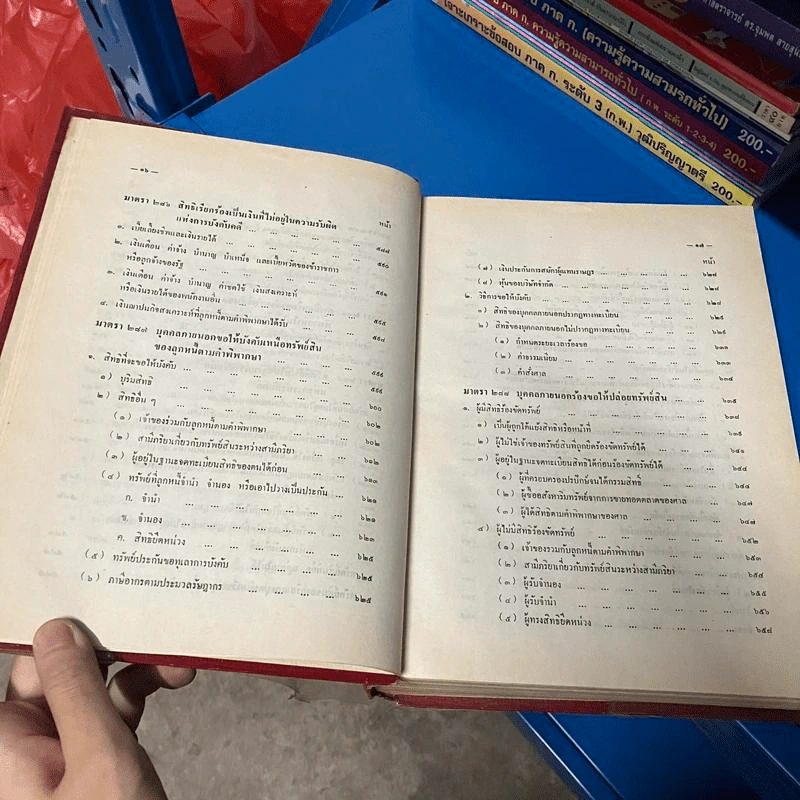 — ๑๖ —
มาตรา ๒๘๖ สิทธิเรียกร้องเป็นเงินที่ไม่อยู่ในความรับผิด หน้า
แห่งการบังคับคดี ... ... ... ... ...
๑. เบี้ยเลี้ยงชีพและเงินรายได้ ... ... ... ... ๕๘๘
๒. เงินเดือน ค่าจ้าง บำนาญ บำเหน็จ และเบี้ยหวัดของข้าราชการ
หรือลูกจ้างของรัฐ ... ... ... ... ... ๕๙๐
๓. เงินเดือน ค่าจ้าง บำนาญ ค่าชดใช้ เงินสงเคราะห์
หรือเงินรายได้ของพนักงานอื่น ... ... ... ๕๙๑
๔. เงินฌาปนกิจสงเคราะห์ที่ลูกหนี้ตามคำพิพากษาได้รับ ... ๕๙๕
มาตรา ๒๘๗ บุคคลภายนอกขอให้บังคับเหนือทรัพย์สิน
ของลูกหนี้ตามคำพิพากษา ... ... ... ...
๑. สิทธิที่จะขอให้บังคับ ... ... ... ... ... ๕๙๙
๑) บุริมสิทธิ ... ... ... ... ... ๕๙๙
๒) สิทธิอื่น ๆ ... ... ... ... ... ๖๐๐
(๑) เจ้าของรวมกับลูกหนี้ตามคำพิพากษา ... ... ๖๐๒
(๒) สามีภริยาเกี่ยวกับทรัพย์สินระหว่างสามีภริยา ... ๖๐๒
(๓) ผู้อยู่ในฐานะจดทะเบียนสิทธิของตนได้ก่อน ... ... ๖๑๒
(๔) ทรัพย์ที่ลูกหนี้จำนำ จำนอง หรือเอาไปวางเป็นประกัน ... ๖๒๑
ก. จำนำ ... ... ... ... ... ๖๒๑
ข. จำนอง ... ... ... ... ... ๖๒๓
ค. สิทธิยึดหน่วง ... ... ... ... ๖๒๕
(๕) ทรัพย์ประกันขอทุเลาการบังคับ ... ... ... ๖๒๕
(๖) ภาษีอากรตามประมวลรัษฎากร ... ... ... ๖๒๕
— ๑๗ —
หน้า
(๗) เงินประกันการสมัครผู้แทนราษฎร ... ... ... ๖๒๗
(๘) หุ้นของบริษัทจำกัด ... ... ... ... ๖๒๗
๒. วิธีการขอให้บังคับ ... ... ... ... ... ๖๒๗
๑) สิทธิของบุคคลภายนอกปรากฏทางทะเบียน ... ...
๒) สิทธิของบุคคลภายนอกไม่ปรากฏทางทะเบียน ... ... ๖๒๙
(๑) กำหนดระยะเวลาร้องขอ ... ... ... ๖๓๑
(๒) ค่าธรรมเนียม ... ... ... ... ๖๓๓
(๓) คำสั่งศาล ... ... ... ... ... ๖๓๔
มาตรา ๒๘๘ บุคคลภายนอกร้องขอให้ปล่อยทรัพย์สิน ... ... ๖๓๕
๑. ผู้มีสิทธิร้องขัดทรัพย์ ... ... ... ... ... ๖๓๘
๑) เป็นผู้ถูกโต้แย้งสิทธิหรือหน้าที่ ... ... ... ๖๓๘
๒) ผู้ไม่ใช่เจ้าของทรัพย์สินที่ถูกยึดร้องขัดทรัพย์ได้ ... ... ๖๔๑
๓) ผู้อยู่ในฐานะจดทะเบียนสิทธิได้ก่อนร้องขัดทรัพย์ได้ ... ๖๔๔
(๑) ผู้ที่ครอบครองปรปักษ์จนได้กรรมสิทธิ์ ... ... ๖๔๔
(๒) ผู้ซื้ออสังหาริมทรัพย์จากการขายทอดตลาดของศาล ... ๖๔๗
(๓) ผู้ได้สิทธิตามคำพิพากษาของศาล ... ... ๖๔๗
๔) ผู้ไม่มีสิทธิร้องขัดทรัพย์ ... ... ... ... ๖๕๒
(๑) เจ้าของรวมกับลูกหนี้ตามคำพิพากษา ... ... ๖๕๓
(๒) สามีภริยาเกี่ยวกับทรัพย์สินระหว่างสามีภริยา ... ๖๕๔
(๓) ผู้รับจำนอง ... ... ... ... ๖๕๕
(๔) ผู้รับจำนำ ... ... ... ... ... ๖๕๖
(๕) ผู้ทรงสิทธิยึดหน่วง ... ... ... ... ๖๕๘
เจาะเกราะข้อสอบ ภาค ก. ระดับ 3 (ก.พ.) วุฒิปริญญาตรี 200.-
ภาค ก. ความรู้ความสามารถทั่วไป ( ก.พ. ระดับ 1-2-3-4) 200.-
ภาค ก. (ความรู้ความสามารถทั่วไป) 200.-
ศาสตราจารย์ ดร.จุมพต